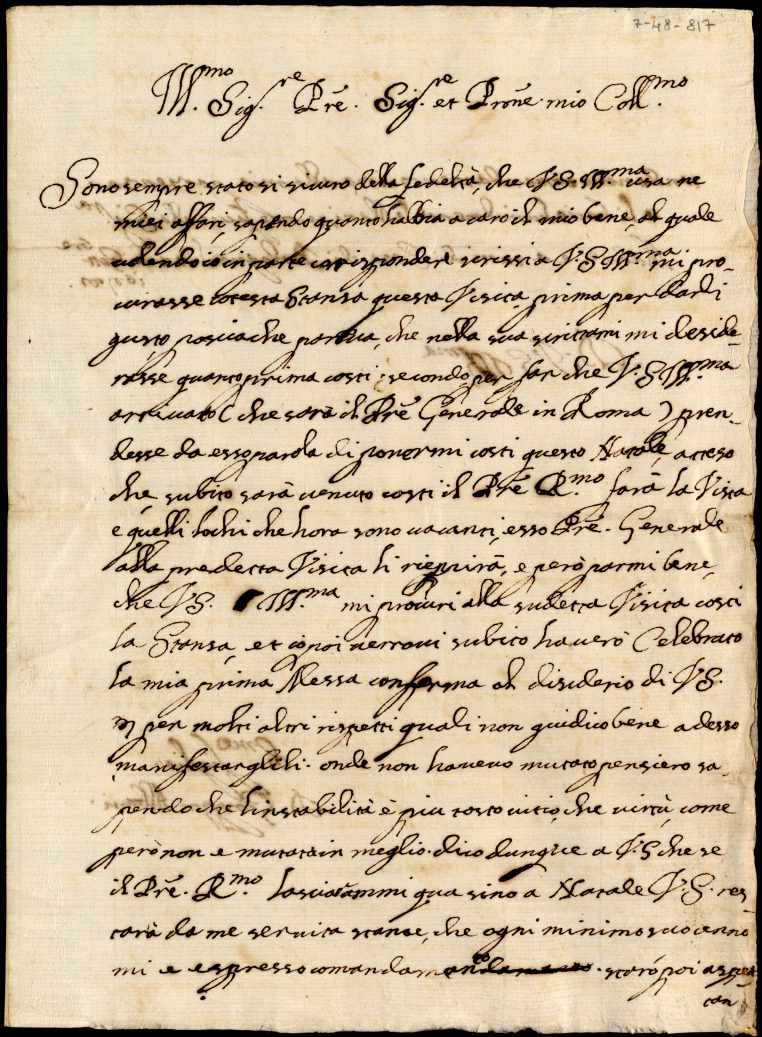 7-48-817
Ill.mo Sig.re Prẽ. Sig.re et Prone mio Coll.mo
Sono sempre stato si sicuro della fedeltà, che V.S. Ill.ma usa ne
miei affari, sapendo quanto habbia a caro il mio bene, al quale
volendo io in parte corrisponder scrissi a V.S. Ill.ma mi pro-
curasse cotesta Stansa questa Visita, prima per darli
gusto posciache pareva, che nella sua scrittami mi deside-
rasse quanto prima costì; secondo per far che V.S. Ill.ma
arrivato (che sarà il Prẽ Generale in Roma) pren-
desse da esso parola di ponermi costì questo Natale, atteso
che subito sarà venuto costì il Prẽ R.mo farà la Visita
e quelli lochi che hora sono vacanti, esso Prẽ. Generale
alla predetta Visita li riempirà, e però parmi bene,
che V.S. Ill.ma mi procuri alla sudetta Visita costì
la Stansa, et io poi verrovi subito haverò Celebrato
la mia prima Messa conferma al disiderio di V.S.
per molti altri rispetti quali non giudico bene adesso
manifestarglili. onde non havevo mutato pensiero sa-
pendo che l'instabilità è più tosto vitio, che virtù, come
però non è mutata in meglio. dico dunque a V.S. che se
il Prẽ. R.mo lasciarammi qua sino a Natale V.S. res-
tarà da me servita stante, che ogni minimo suo cenno
mi è espresso comandamento. starò poi aspet-
tan